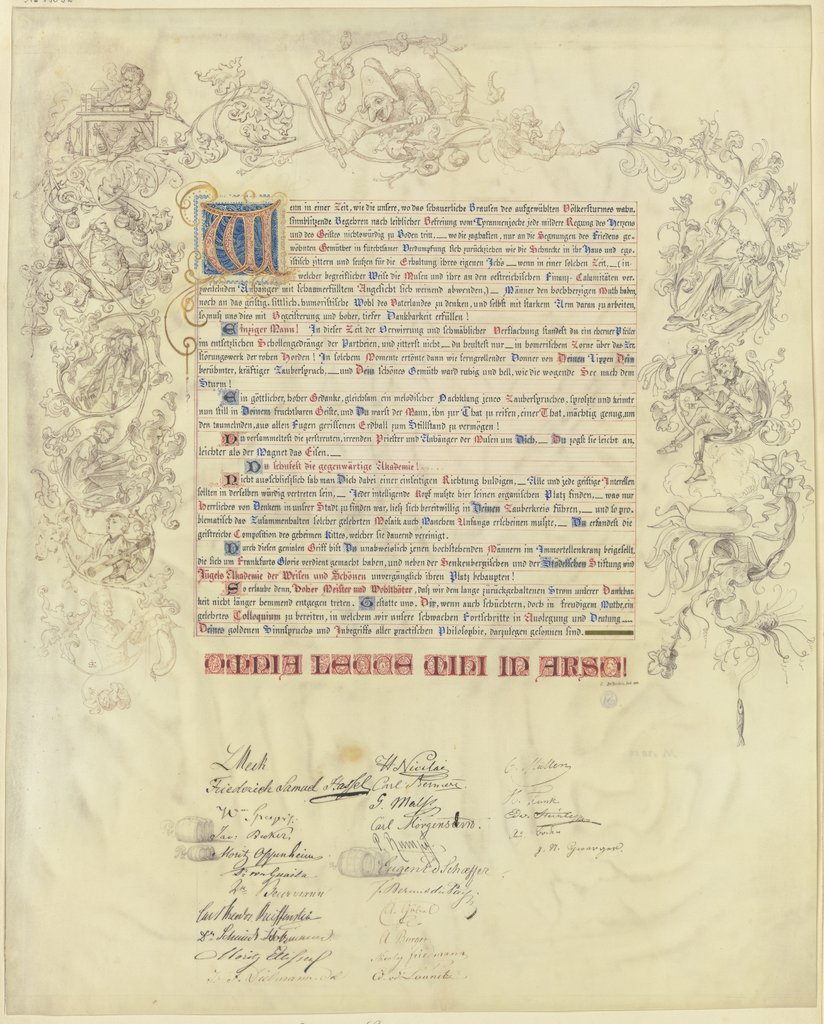 Wenn in einer Zeit, wie die unsere, wo das schauerliche Brausen des aufgewühlten Völkersturmes wahn-
sinnblitzende Begehren nach leiblicher Befreiung vom Tyrannenjoche jede mildere Regung des Herzens
und des Geistes nichtswürdig zu Boden tritt, wo die zaghaften, nur an die Segnungen des Friedens ge-
wöhnten Gemüther in furchtsamer Verdumpfung sich zurückziehen wie die Schnecke in ihr Haus und ego-
istisch zittern und seufzen für die Erhaltung ihres eigenen Ichs wenn in einer solchen Zeit, (in
welcher begreiflicher Weise die Musen und ihre an den oestreichischen Finanz-Calamitäten ver-
zweifelnden Anhänger mit schaumerfülltem Angesicht sich weinend abwenden,) Männer den hochherzigen Muth haben,
noch an das geistig, sittlich, humoristische Wohl des Vaterlandes zu denken, und selbst mit starkem Arm daran zu arbeiten,
so muß uns dies mit Begeisterung und hoher, tiefer Dankbarkeit erfüllen!
Einziger Mann! In dieser Zeit der Verwirrung und schmählicher Verflachung standest du ein eherner Pfeiler
im entsetzlichen Schollengedränge der Partheien, und zittertest nicht du heultest nur in homerischem Zorne über das Zer-
störungswerk der rohen Horden! In solchem Momente ertönte dann wie ferngrollender Donner von Deinen Lippen Dein
berühmter, kräftiger Zauberspruch, und Dein schönes Gemüth ward ruhig und hell, wie die wogende See nach dem
Sturm!
Ein göttlicher, hoher Gedanke, gleichsam ein melodischer Nachklang jenes Zauberspruches, sproßte und keimte
nun still in Deinem fruchtbaren Geiste, und Du warst der Mann, ihn zur That zu reifen, einer That, mächtig genug, um
den taumelnden, aus allen Fugen gerissenen Erdball zum Stillstand zu vermögen!
Du versammeltest die zerstreuten, irrenden Priester und Anhänger der Musen um Dich, Du zogst sie leicht an,
leichter als der Magnet das Eisen,
Du schufest die gegenwärtige Akademie!
Nicht ausschließlich sah man Dich dabei einer einseitigen Richtung huldigen, Alle und jede geistige Interessen
sollten in derselben würdig vertreten sein, Jeder intelligente Kopf mußte hier seinen organischen Platz finden, was nur
Herrliches von Denkern in unsrer Stadt zu finden war, ließ sich bereitwillig in Deinen Zauberkreis führen, und so pro-
blematisch das Zusammenhalten solcher gelehrten Mosaik auch Manchem Anfangs erscheinen mußte, Du erfandest die
geistreiche Composition des geheimen Kittes, welcher sie dauernd vereinigt.
Durch diesen genialen Griff bist Du unabweislich jenen hochstehenden Männern im Immortellenkranz beigesellt,
die sich um Frankfurts Glorie verdient gemacht haben, und neben der Senkenbergischen und der Städelschen Stiftung wird
Jügels Akademie der Weisen und Schönen unvergänglich ihren Platz behaupten!
So erlaube denn, Hoher Meister und Wohlthäter, daß wir dem lange zurückgehaltenen Strom unserer Dankbar-
keit nicht länger hemmend entgegen treten. Gestatte uns, Dir, wenn auch schüchtern, doch in freudigem Muthe, ein
gelehrtes Colloquium zu bereiten, in welchem wir unsere schwachen Fortschritte in Auslegung und Deutung
Deines goldenen Sinnspruchs und Inbegriffs aller practischen Philosophie, darzulegen gesonnen sind.
OMNIA LECCE MIHI IN ARSO!
LMeck
Friederich Samuel Hassel
Jac: Becker
Moritz Oppenheim
H Nicolai
G. Malss
Carl Morgenstern.
Eugen E d Schæffer
A Burger